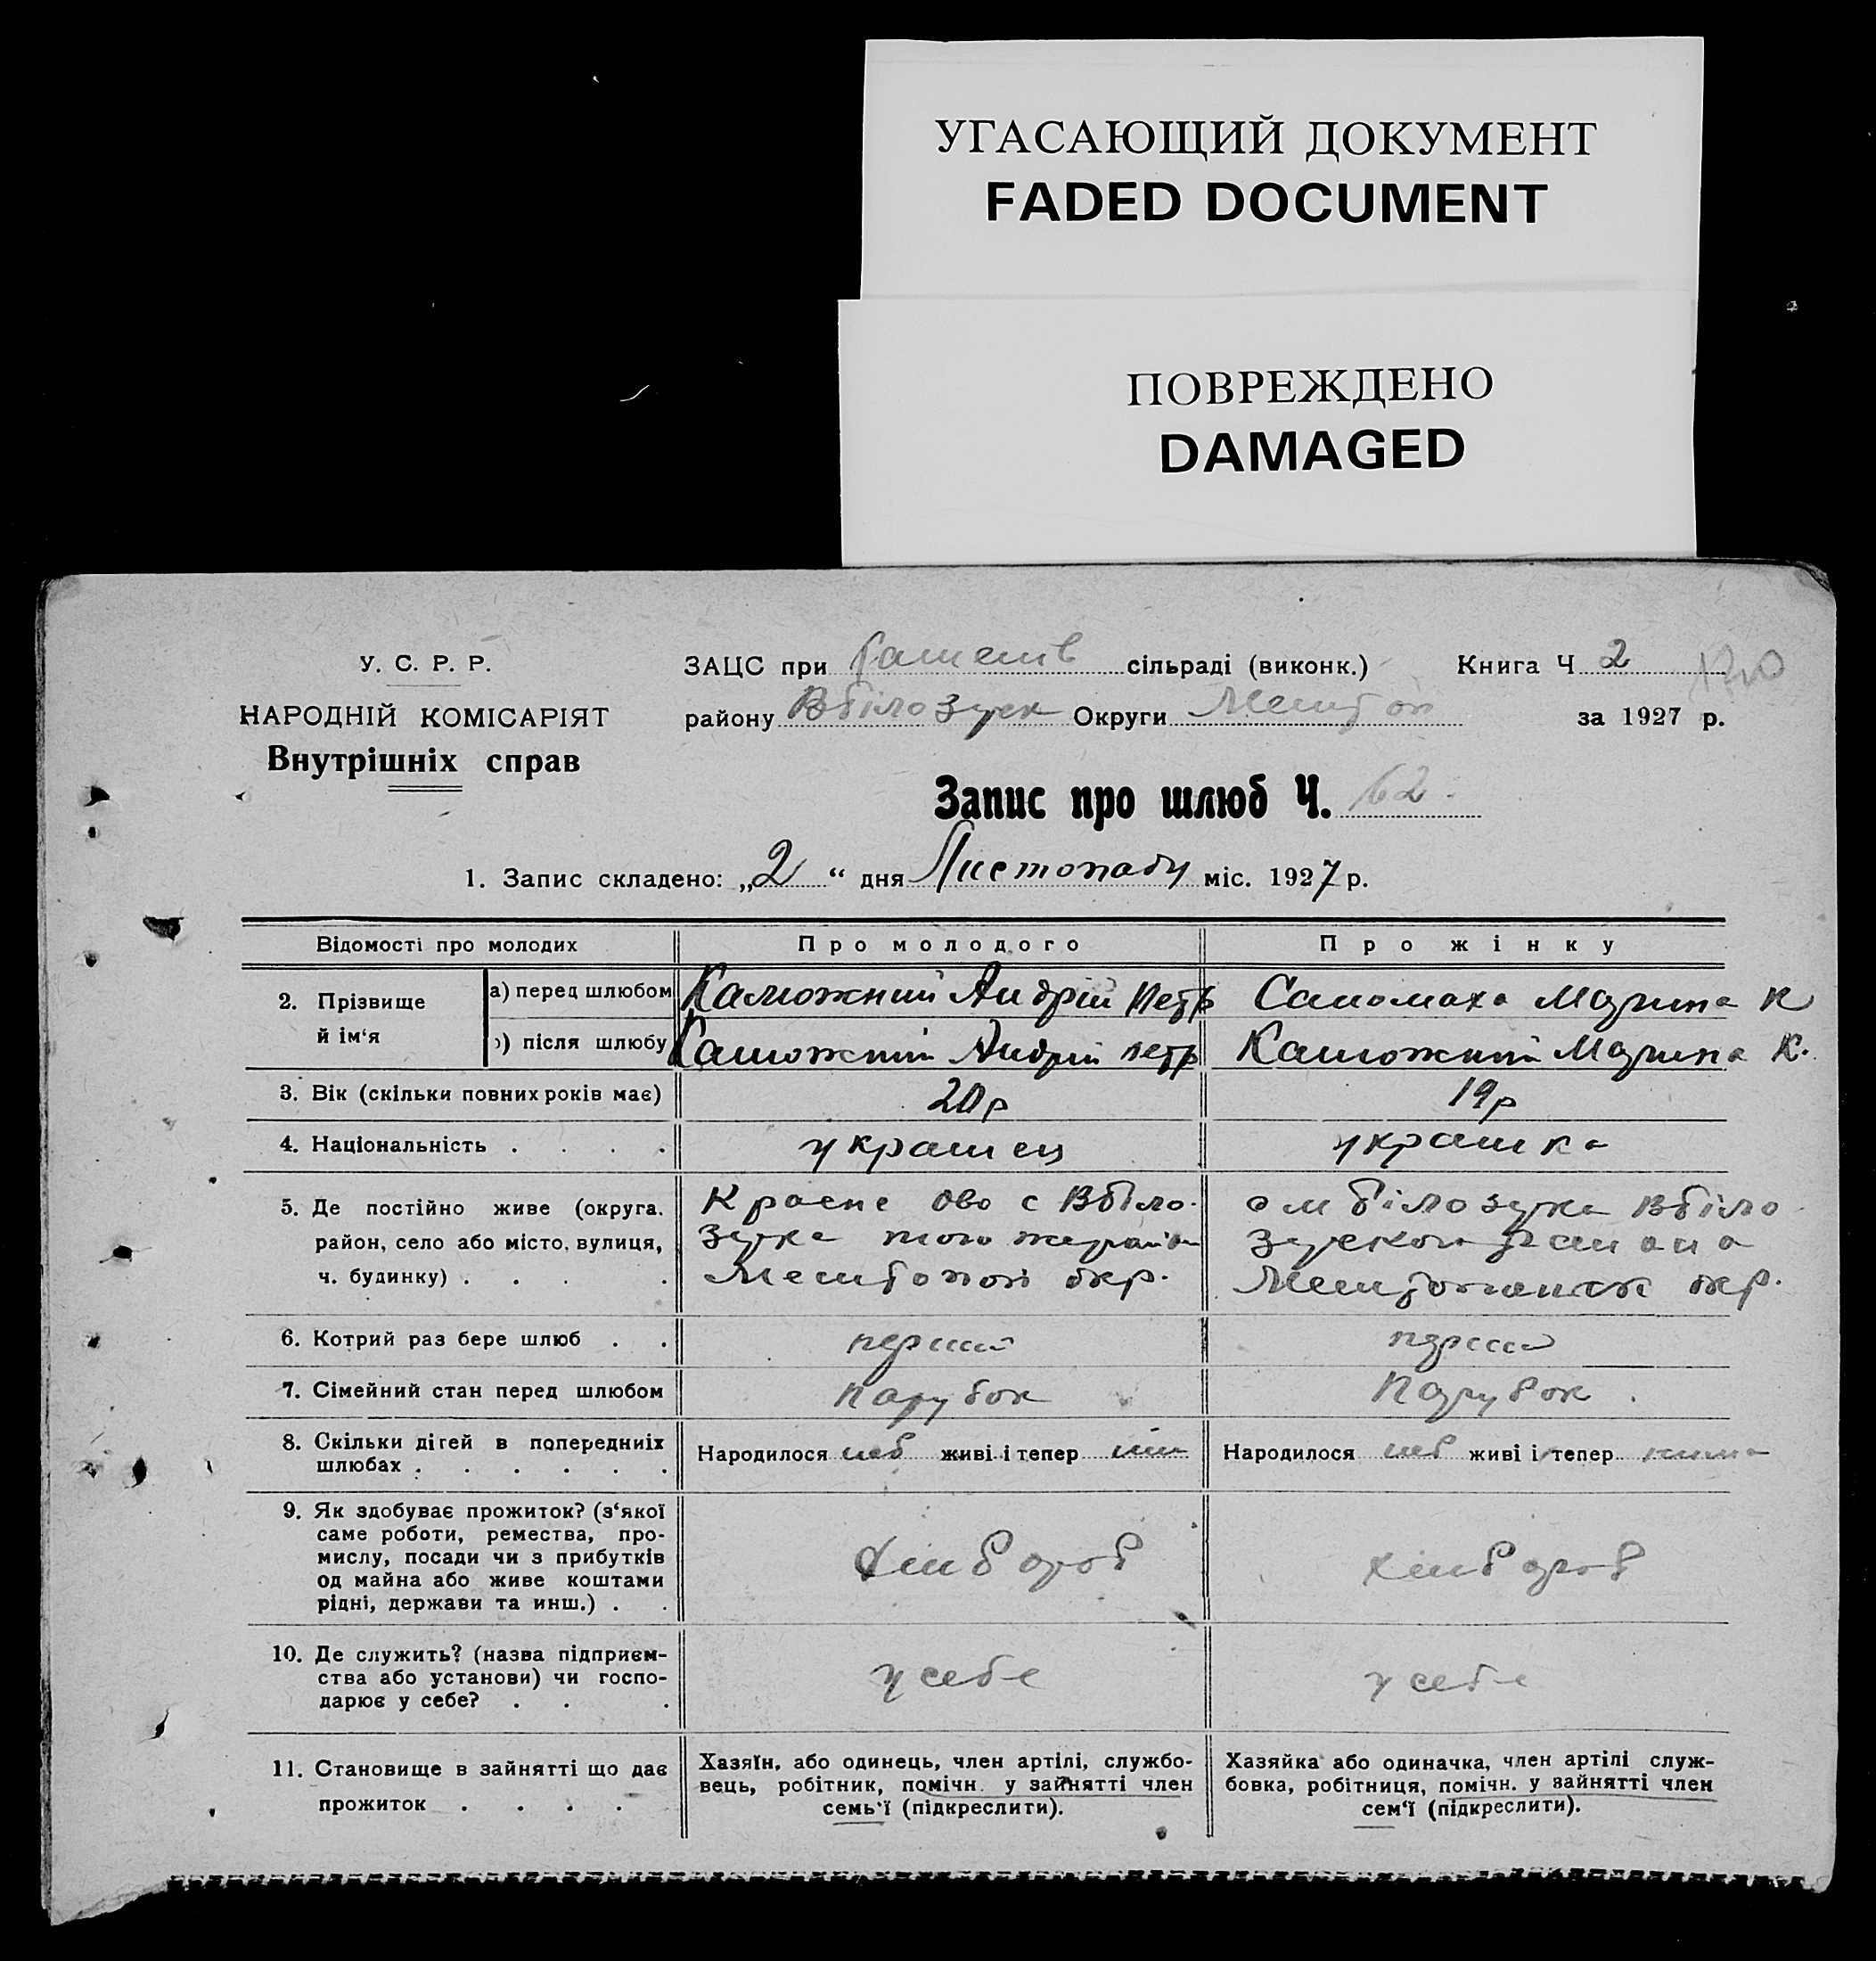 УГАСАЮЩИЙ ДОКУМЕНТ
FADED DOCUMENT
ПОВРЕЖДЕНО
DAMAGED
У. С. Р. Р.
НАРОДНІЙ КОМІСАРІЯТ
Внутрішніх справ
ЗАЦС при сільраді (виконк.) Книга Ч 2
району Вбілозерк Округи за 1927 р.
Запис про шлюб Ч. 62
1. Запис складено: „2“ дня Листопаду міс. 1927 р.
Відомості про молодих
Про молодого
Про жінку
2. Прізвище й ім‘я
а) перед шлюбом Калюжний Андрій Петр Саломаха Марина К
) після шлюбу Калюжний Андрій петр Калюжний Марина К.
3. Вік (скільки повних років має) 20р 19р
4. Національність украінец украінка
5. Де постійно живе (округа,
район, село або місто, вулиця,
ч. будинку)
с Вбіло
зерка того окр.
Вбіло
окр.
6. Котрий раз бере шлюб перший перший
7. Сімейний стан перед шлюбом парубок Парубок
8. Скільки дітей в попередниіх
шлюбах
Народилося живі і тепер
Народилося живі і тепер нима
9. Як здобуває прожиток? (з‘якої
саме роботи, ремества, про-
мислу, посади чи з прибутків
од майна або живе коштами
рідні, держави та инш.)
хліб хліб
10. Де служить? (назва підприєм-
ства або установи) чи госпо-
дарює у себе?
у себе у себе
11. Становище в зайнятті що дає
прожиток
Хазяїн, або одинець, член артілі, службо-
вець, робітник, помічн. у зайнятті член
семь‘ї (підкреслити).
Хазяйка або одиначка, член артілі служ-
бовка, робітниця, помічн. у зайнятті член
сем‘ї (підкреслити).